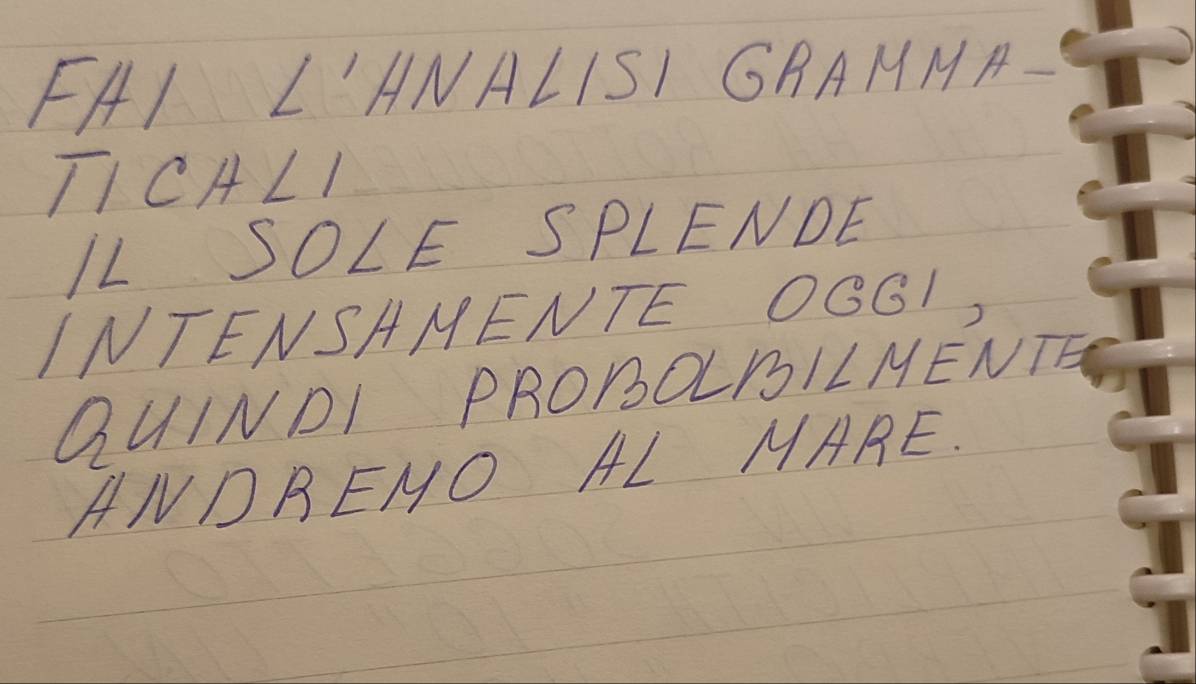 FAI L'ANALISI GRAMMA-
TICALI
IL SOLE SPLENDE
INTENSAMENTE OGGI,
QUINDI PROBABILMENTE
ANDREMO AL MARE.